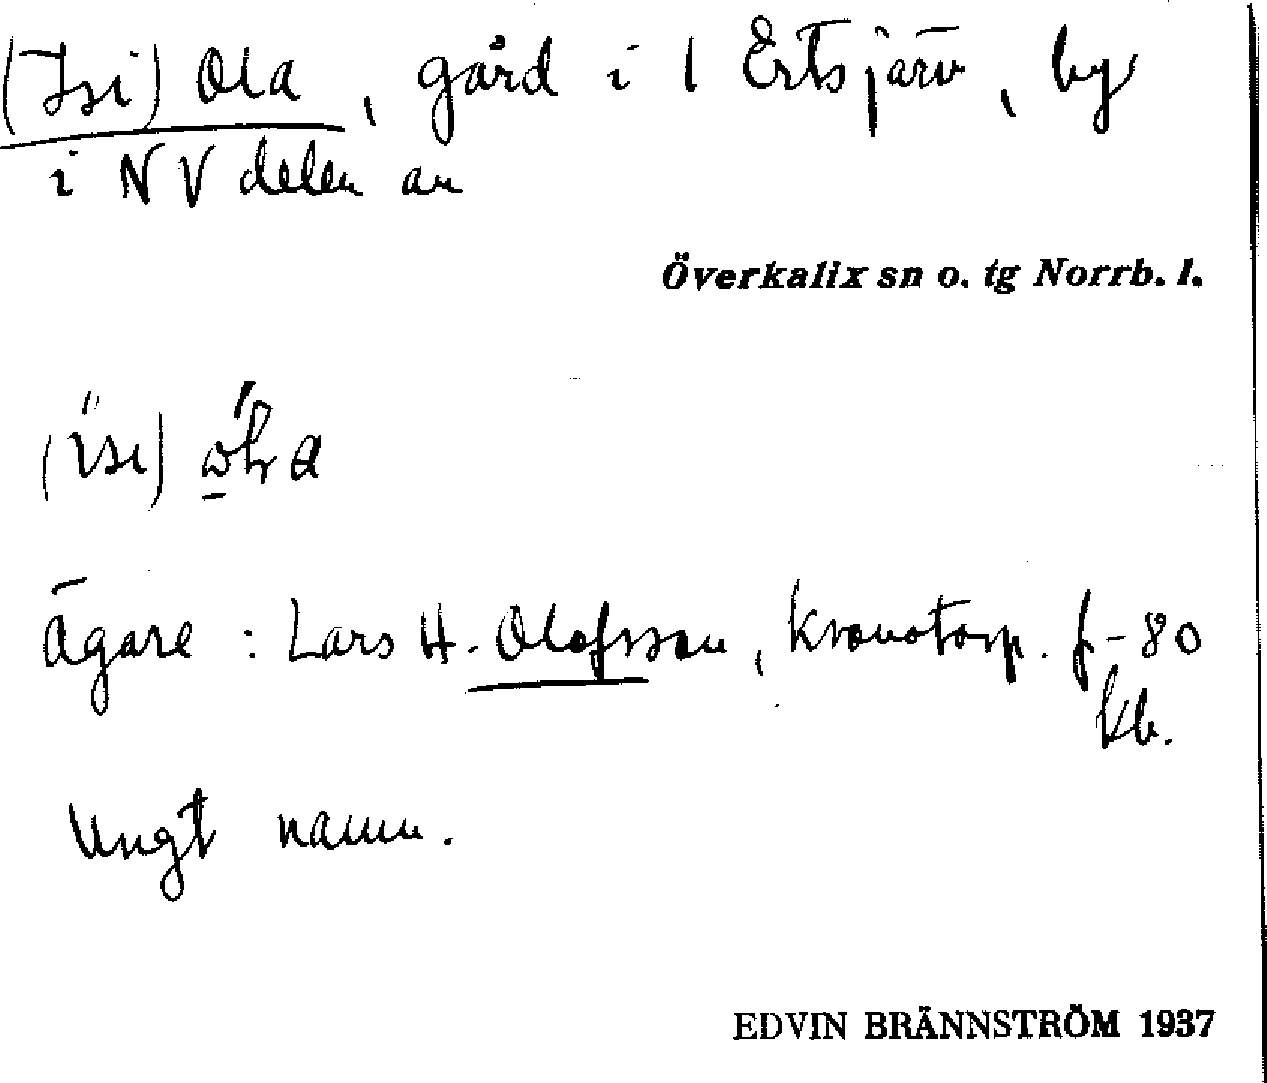 (Isi) Ola, gård i l Ertsjärv, by
i NV delen av
Överkalix sn o. tg Norrb. l.
Ägare : Lars H. Olofsson, Kronotorp. f-80
kb.
Ungt namn.
EDVIN BRÄNNSTRÖM 1937